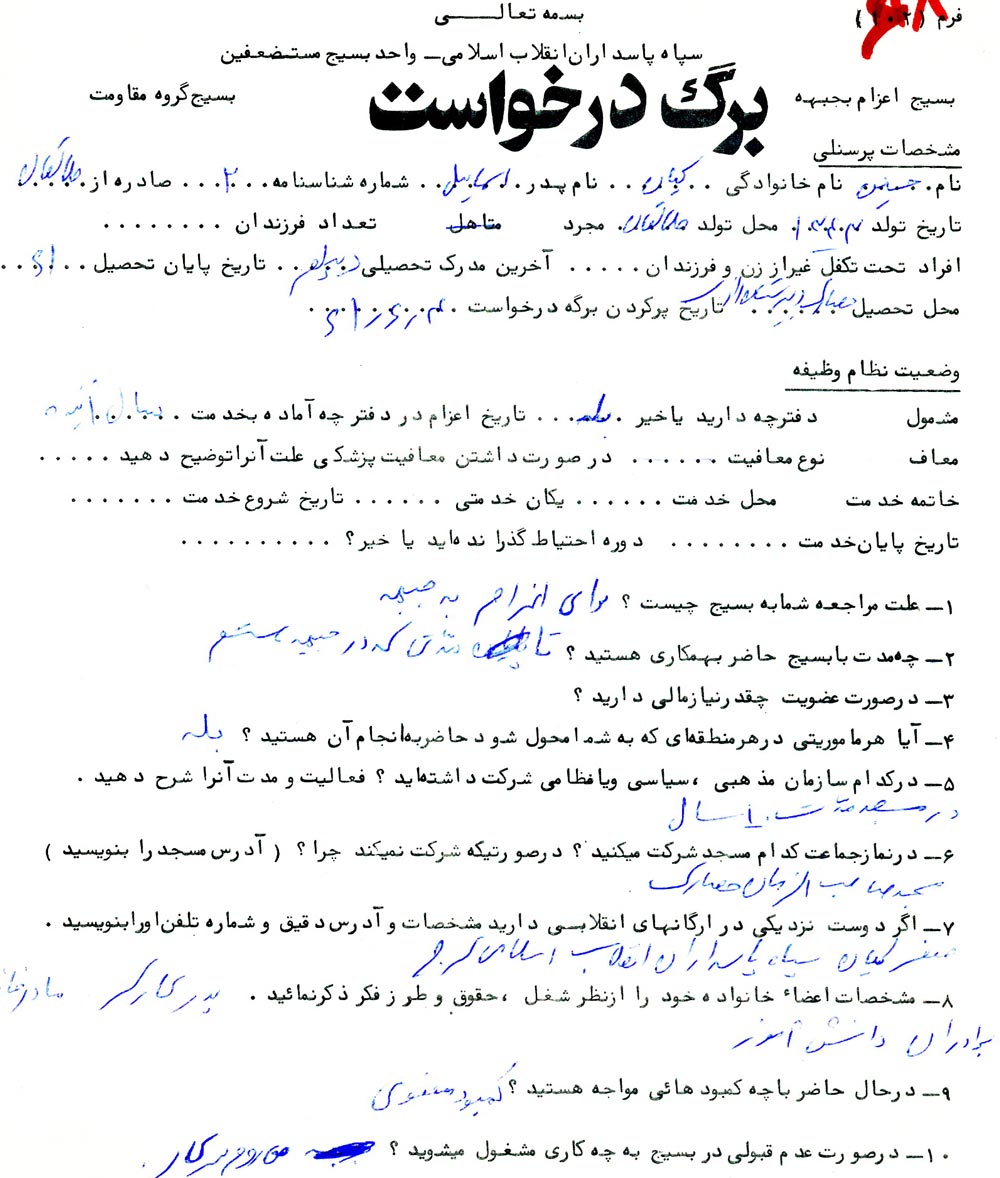 بسمه تعالی
فرم (۱۰۲)
سپاه پاسداران انقلاب اسلامی — واحد بسیج مستضعفین
بسیج اعزام بجبهه برگ درخواست بسیج گروه مقاومت
مشخصات پرسنلی
نام. حسین نام خانوادگی .. کیان .. نام پدر. اسماعیل .. شماره شناسنامه ... ۲ ... صادره از. طالقان
تاریخ تولد محل تولد طالقان. مجرد متاهل تعداد فرزندان ........
افراد تحت تکفل غیر از زن و فرزندان ..... آخرین مدرک تحصیلی دیپلم .. تاریخ پایان تحصیل ....
محل تحصیل تاریخ پرکردن برگه درخواست
وضعیت نظام وظیفه
مشمول دفترچه دارید یا خیر . بله ... تاریخ اعزام در دفترچه آماده بخدمت .
معاف نوع معافیت ...... در صورت داشتن معافیت پزشکی علت آنرا توضیح دهید .....
خاتمه خدمت محل خدمت ...... یکان خدمتی ...... تاریخ شروع خدمت .......
تاریخ پایان خدمت ........ دوره احتیاط گذرانده‌اید یا خیر؟ ..........
۱— علت مراجعه شما به بسیج چیست ؟ برای اعزام به جبهه
۲— چه مدت با بسیج حاضر بهمکاری هستید ؟ تا مدتی که در جبهه هستم
۳— درصورت عضویت چقدر نیاز مالی دارید ؟
۴— آیا هر ماموریتی در هر منطقه‌ای که به شما محول شود حاضر به انجام آن هستید ؟ بله
۵— در کدام سازمان مذهبی ، سیاسی و یا نظامی شرکت داشته‌اید ؟ فعالیت و مدت آنرا شرح دهید .
در مسجد مدت ۱ سال
۶— در نماز جماعت کدام مسجد شرکت میکنید ؟ درصورتیکه شرکت نمیکند چرا ؟ ( آدرس مسجد را بنویسید )
مسجد صاحب الزمان حصارک
۷— اگر دوست نزدیکی در ارگانهای انقلابی دارید مشخصات و آدرس دقیق و شماره تلفن اورا بنویسید .
جعفر کیان سپاه پاسداران انقلاب اسلامی کرج
۸— مشخصات اعضاء خانواده خود را از نظر شغل ، حقوق و طرز فکر ذکر نمائید . پدر کارگر
برادران دانش آموز
۹— در حال حاضر با چه کمبودهائی مواجه هستید ؟ کمبود معنوی
۱۰— درصورت عدم قبولی در بسیج به چه کاری مشغول میشوید ؟ می روم سر کار .